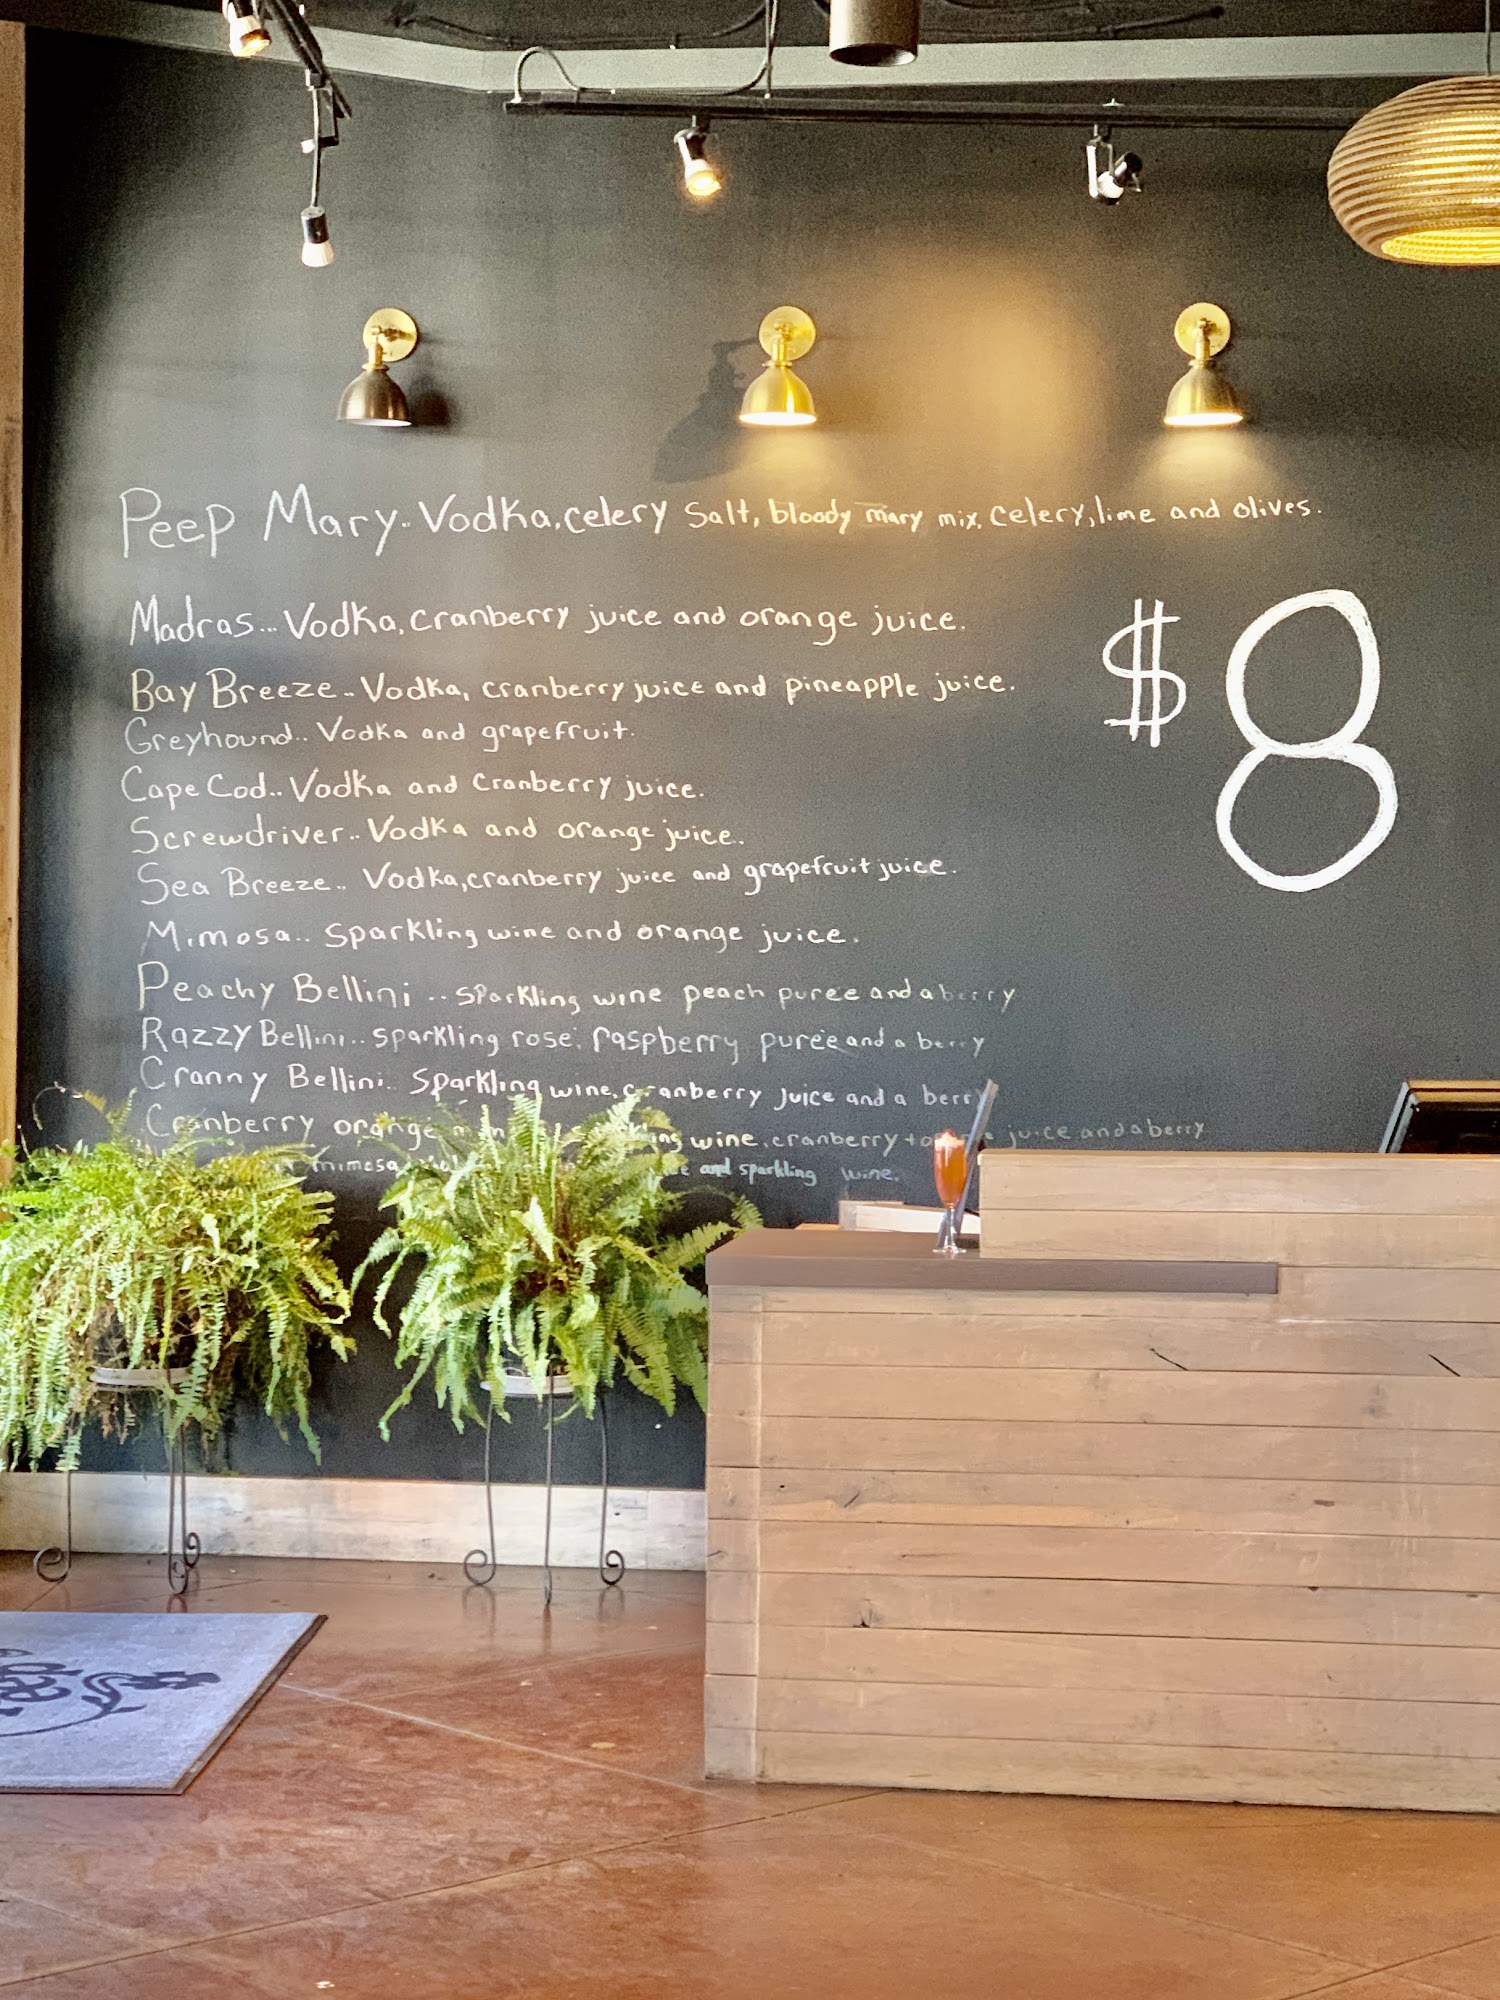 Peep Mary.. Vodka, celery salt, bloody mary mix, celery, lime and olives.
Madras... Vodka, cranberry juice and orange juice.
$8
Bay Breeze.. Vodka, cranberry juice and pineapple juice.
Greyhound.. Vodka and grapefruit.
Cape Cod.. Vodka and cranberry juice.
Screwdriver.. Vodka and orange juice.
Sea Breeze.. Vodka, cranberry juice and grapefruit juice.
Mimosa.. Sparkling wine and orange juice.
Peachy Bellini.. sparkling wine peach purée and a berry
Razzy Bellini.. sparkling rosé, raspberry purée and a berry
Cranny Bellini.. Sparkling wine, cranberry juice and a berry
Cranberry orange wine, cranberry juice and a berry
mimosa and sparkling wine.